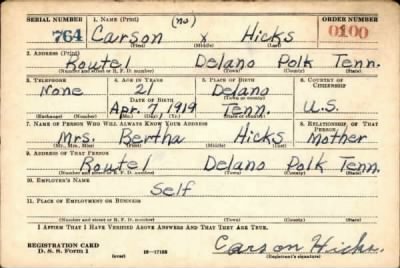 SERIAL NUMBER 1. NAME (Print) (no) ORDER NUMBER
764 Carson x Hicks 0100
(First) (Middle) (Last)
2. ADDRESS (Print)
Route1 Delano Polk Tenn.
(Number and street or R. F. D. number) (Town) (County) (State)
3. TELEPHONE 4. AGE IN YEARS 5. PLACE OF BIRTH 6. COUNTRY OF CITIZENSHIP
None 21 Delano
DATE OF BIRTH (Town or county)
Apr. 7 1919 Tenn. U.S.
(Exchange) (No.) (Mo.) (Day) (Yr.) (State or country)
7. NAME OF PERSON WHO WILL ALWAYS KNOW YOUR ADDRESS 8. RELATIONSHIP OF THAT PERSON
Mrs. Bertha Hicks Mother
(Mr., Mrs., Miss) (First) (Middle) (Last)
9. ADDRESS OF THAT PERSON
Route1 Delano Polk Tenn.
(Number and street or R. F. D. number) (Town) (County) (State)
10. EMPLOYER'S NAME
Self
11. PLACE OF EMPLOYMENT OR BUSINESS
(Number and street or R. F. D. number) (Town) (County) (State)
I AFFIRM THAT I HAVE VERIFIED ABOVE ANSWERS AND THAT THEY ARE TRUE.
REGISTRATION CARD
D. S. S. Form 1 (over) 16-17105 Carson Hicks
(Registrant's signature)